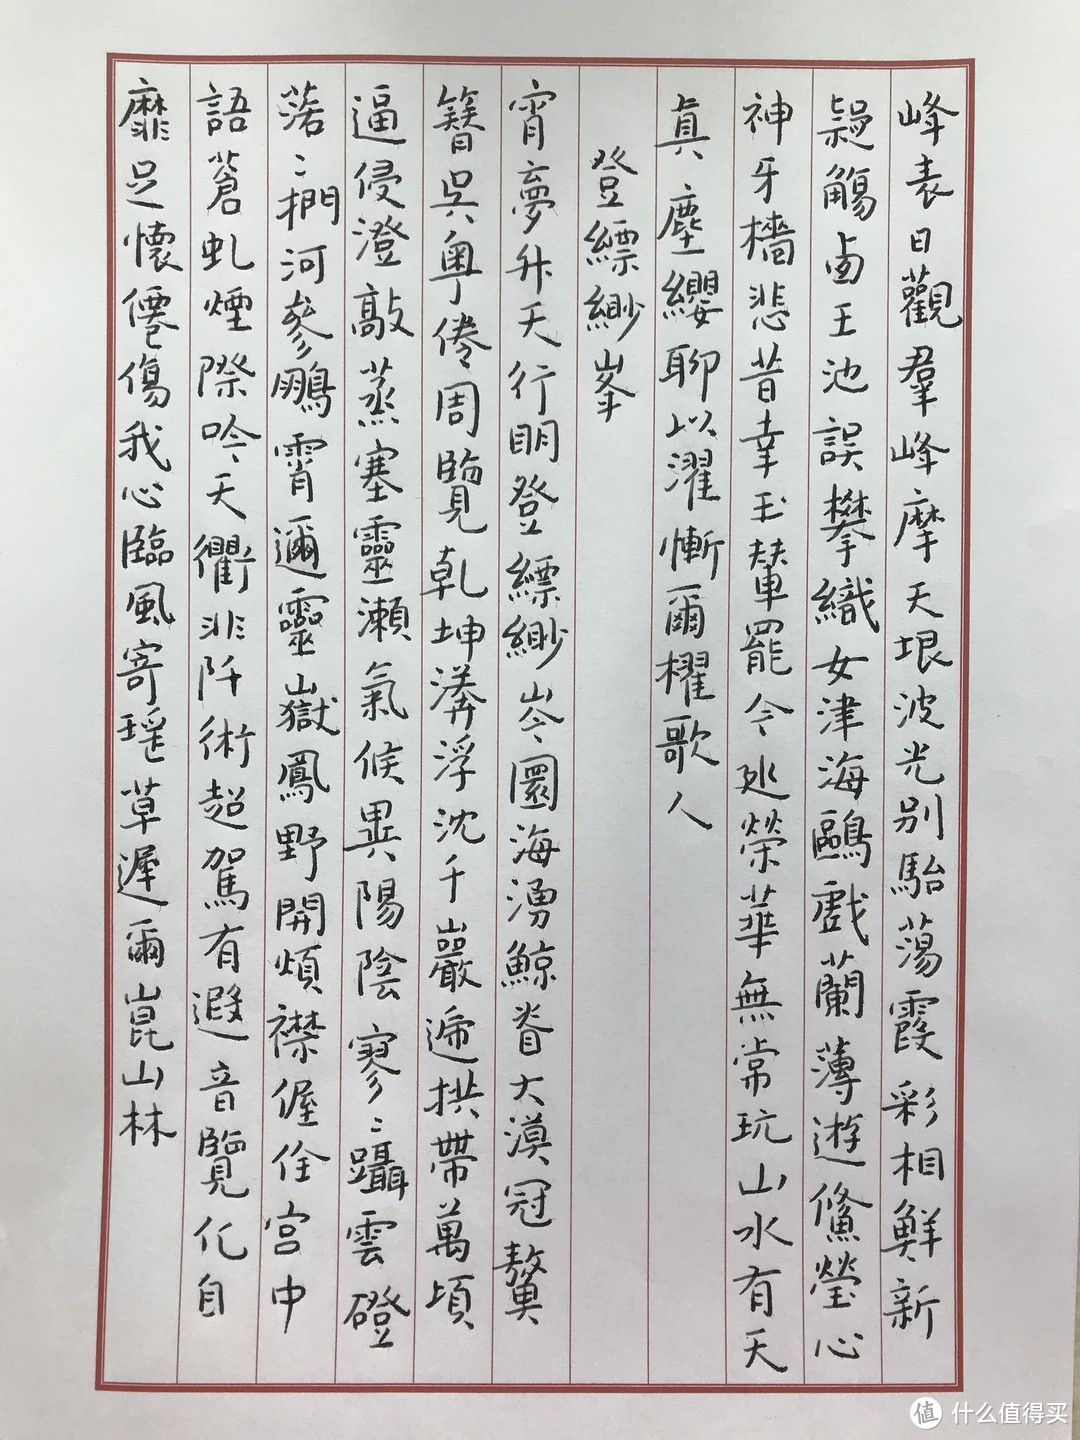 峰表日觀羣峰摩天垠波光别駘蕩霞彩相鮮新
觴鹵王池誤攀織女津海鷗戲蘭薄遊鯈瑩心
神牙檣悲昔幸玉輦罷今廵榮華無常玩山水有天
眞塵纓聊以濯慚爾櫂歌人
登縹緲峯
宵夢升天行明登縹緲岑圜海湧鯨脊大漠冠鼇
簪吳粤倦周覽乹坤漭浮沈千巖遞拱帶萬頃
逼侵澄敲蒸塞靈瀬氣候異陽陰寥〻躡雲磴
落〻捫河參鵬霄邇靈嶽鳳野開煩襟偓佺宮中
語蒼虬煙際吟天衢非阡術超駕有遐音覽化自
靡足懷僊傷我心臨風寄瑶草遲爾崑山林
值 什么值得买